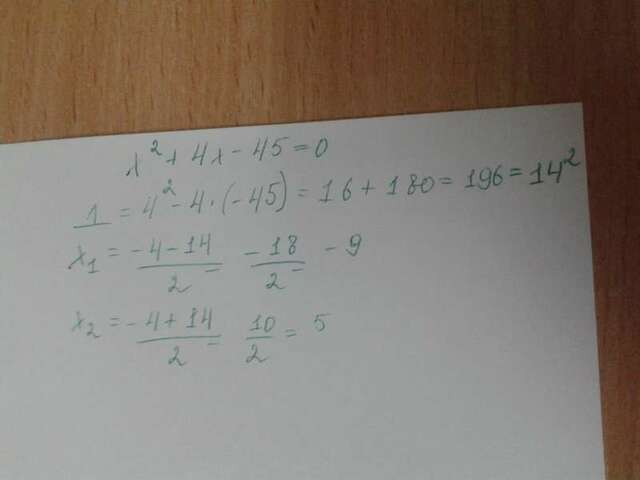 x² + 4x - 45 = 0
D = 4² - 4 · (-45) = 16 + 180 = 196 = 14²
x₁ = \frac{-4-14}{2} = \frac{-18}{2} = -9
x₂ = \frac{-4+14}{2} = \frac{10}{2} = 5